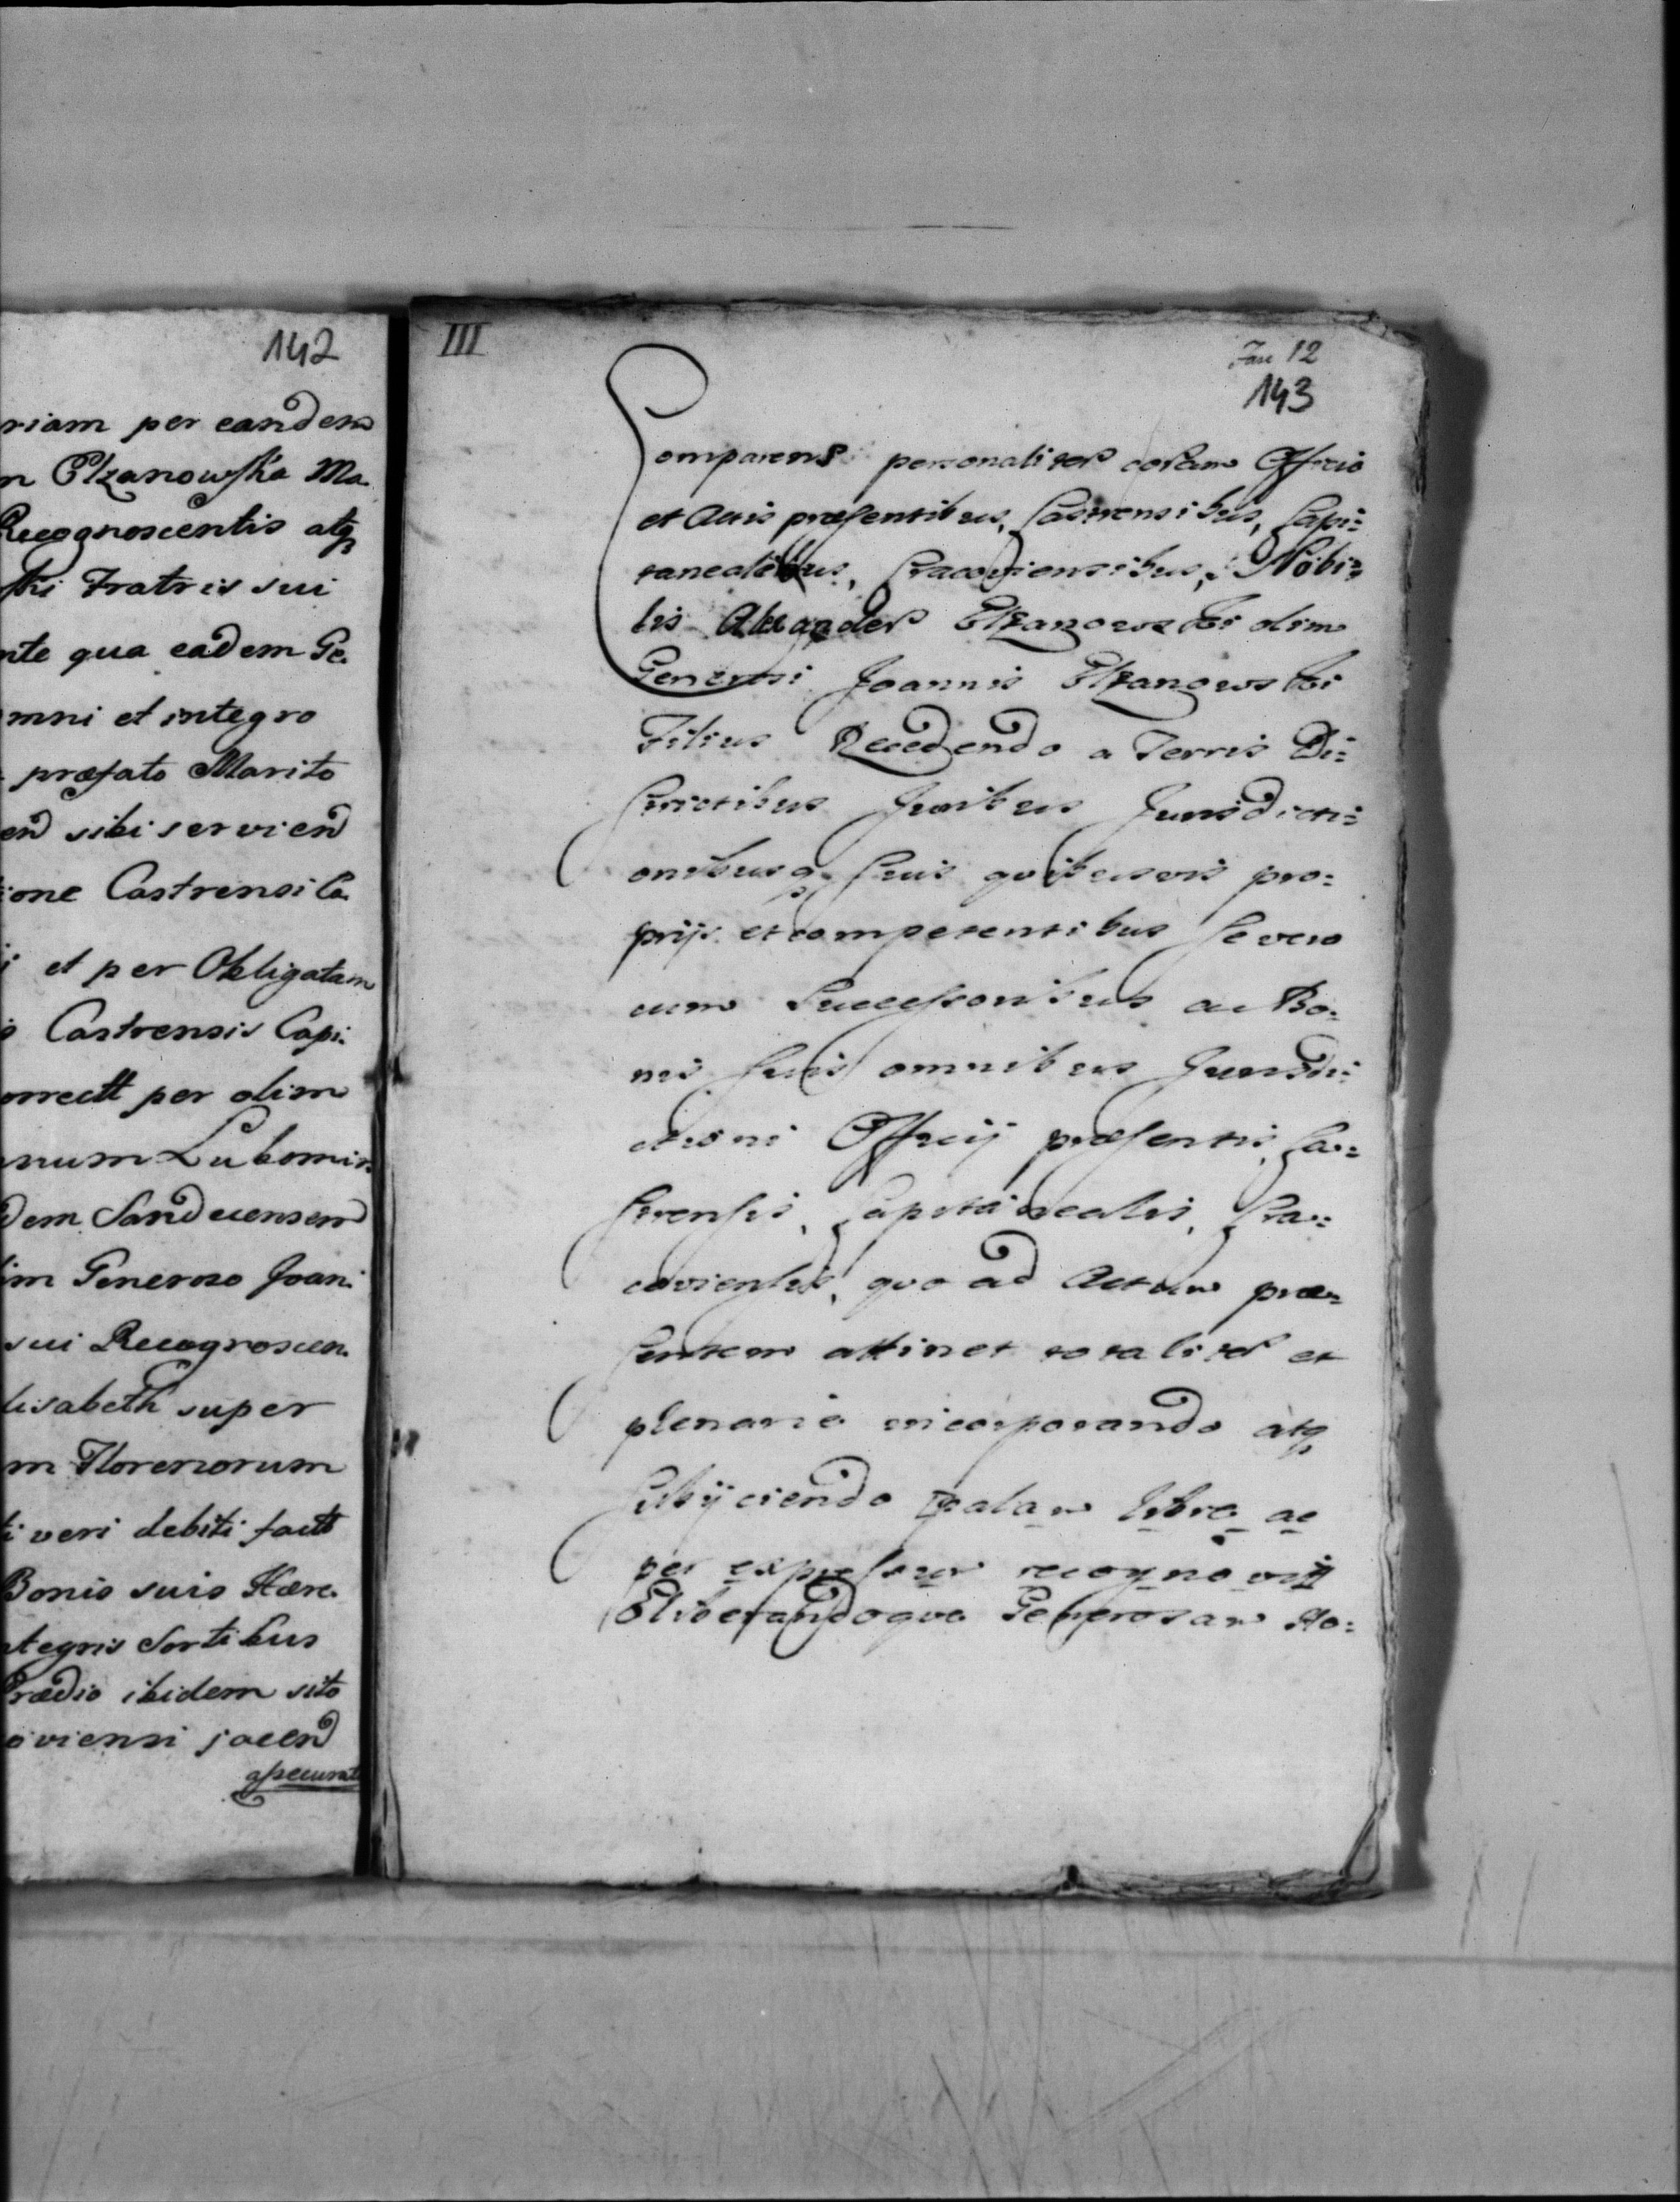 142
riam per eandem
n Elzanowska Ma
Recognoscentis atq
ski Fratris sui
nte qua eadem Ge.
omni et integro
præfato Marito
end sibi serviend
ione Castrensi Ca
i et per Obligatam
s Castrensis Capi.
orrectt per olim
num Lubomir.
dem Sandecensem
im Generoso Joani
sui Recognoscen.
lisabeth super
m Florenorum
ti veri debiti factt
Bonis suis Hære.
ntegris Sortibus
Prædio ibidem sito
oviensi jacend
assecurat
III
Jan 12
143
Comparens personaliter coram Officio
et Actis præsentibus, Castrensibus, Capi:
tanealibus, Cracoviensibus, Nobi:
lis Alexander Elzanowski olim
Generosi Joannis Elzanowski
Filius Recedendo a Terris Di:
strictibus Juribus Jurisdicti:
onibusq suis quibusvis pro:
prijs et competentibus se vero
cum Successoribus ac Bo:
nis suis omnibus Jurisdi:
ctioni Officij præsentis, Ca:
strensis, Capitanealis, Cra:
coviensis, quo ad Actum præ:
sentem attinet totaliter et
plenarie incorporando atq
subijciendo palam libre ac
per expressum recognovit
Eliberandoque Generosam Ho: